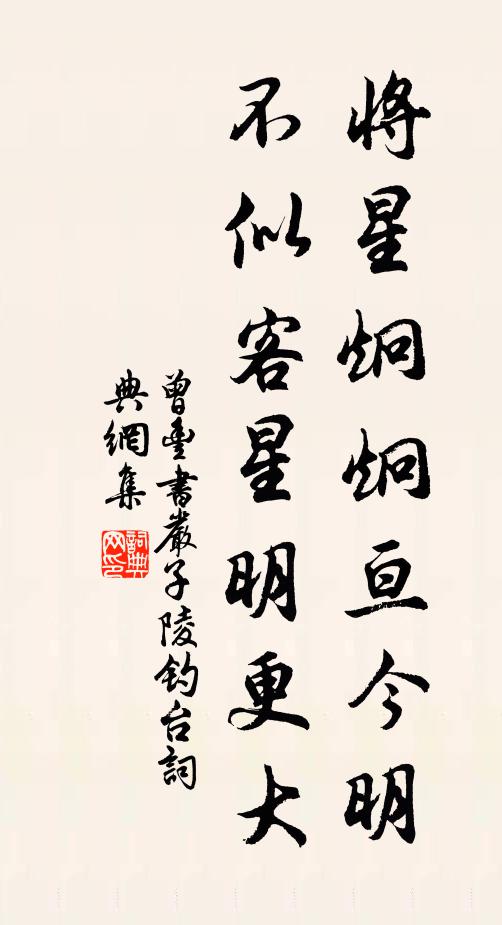 將星炯炯亘今明
不似客星明更大
曾豐書嚴子陵釣台詞
典網集
詞典
网印